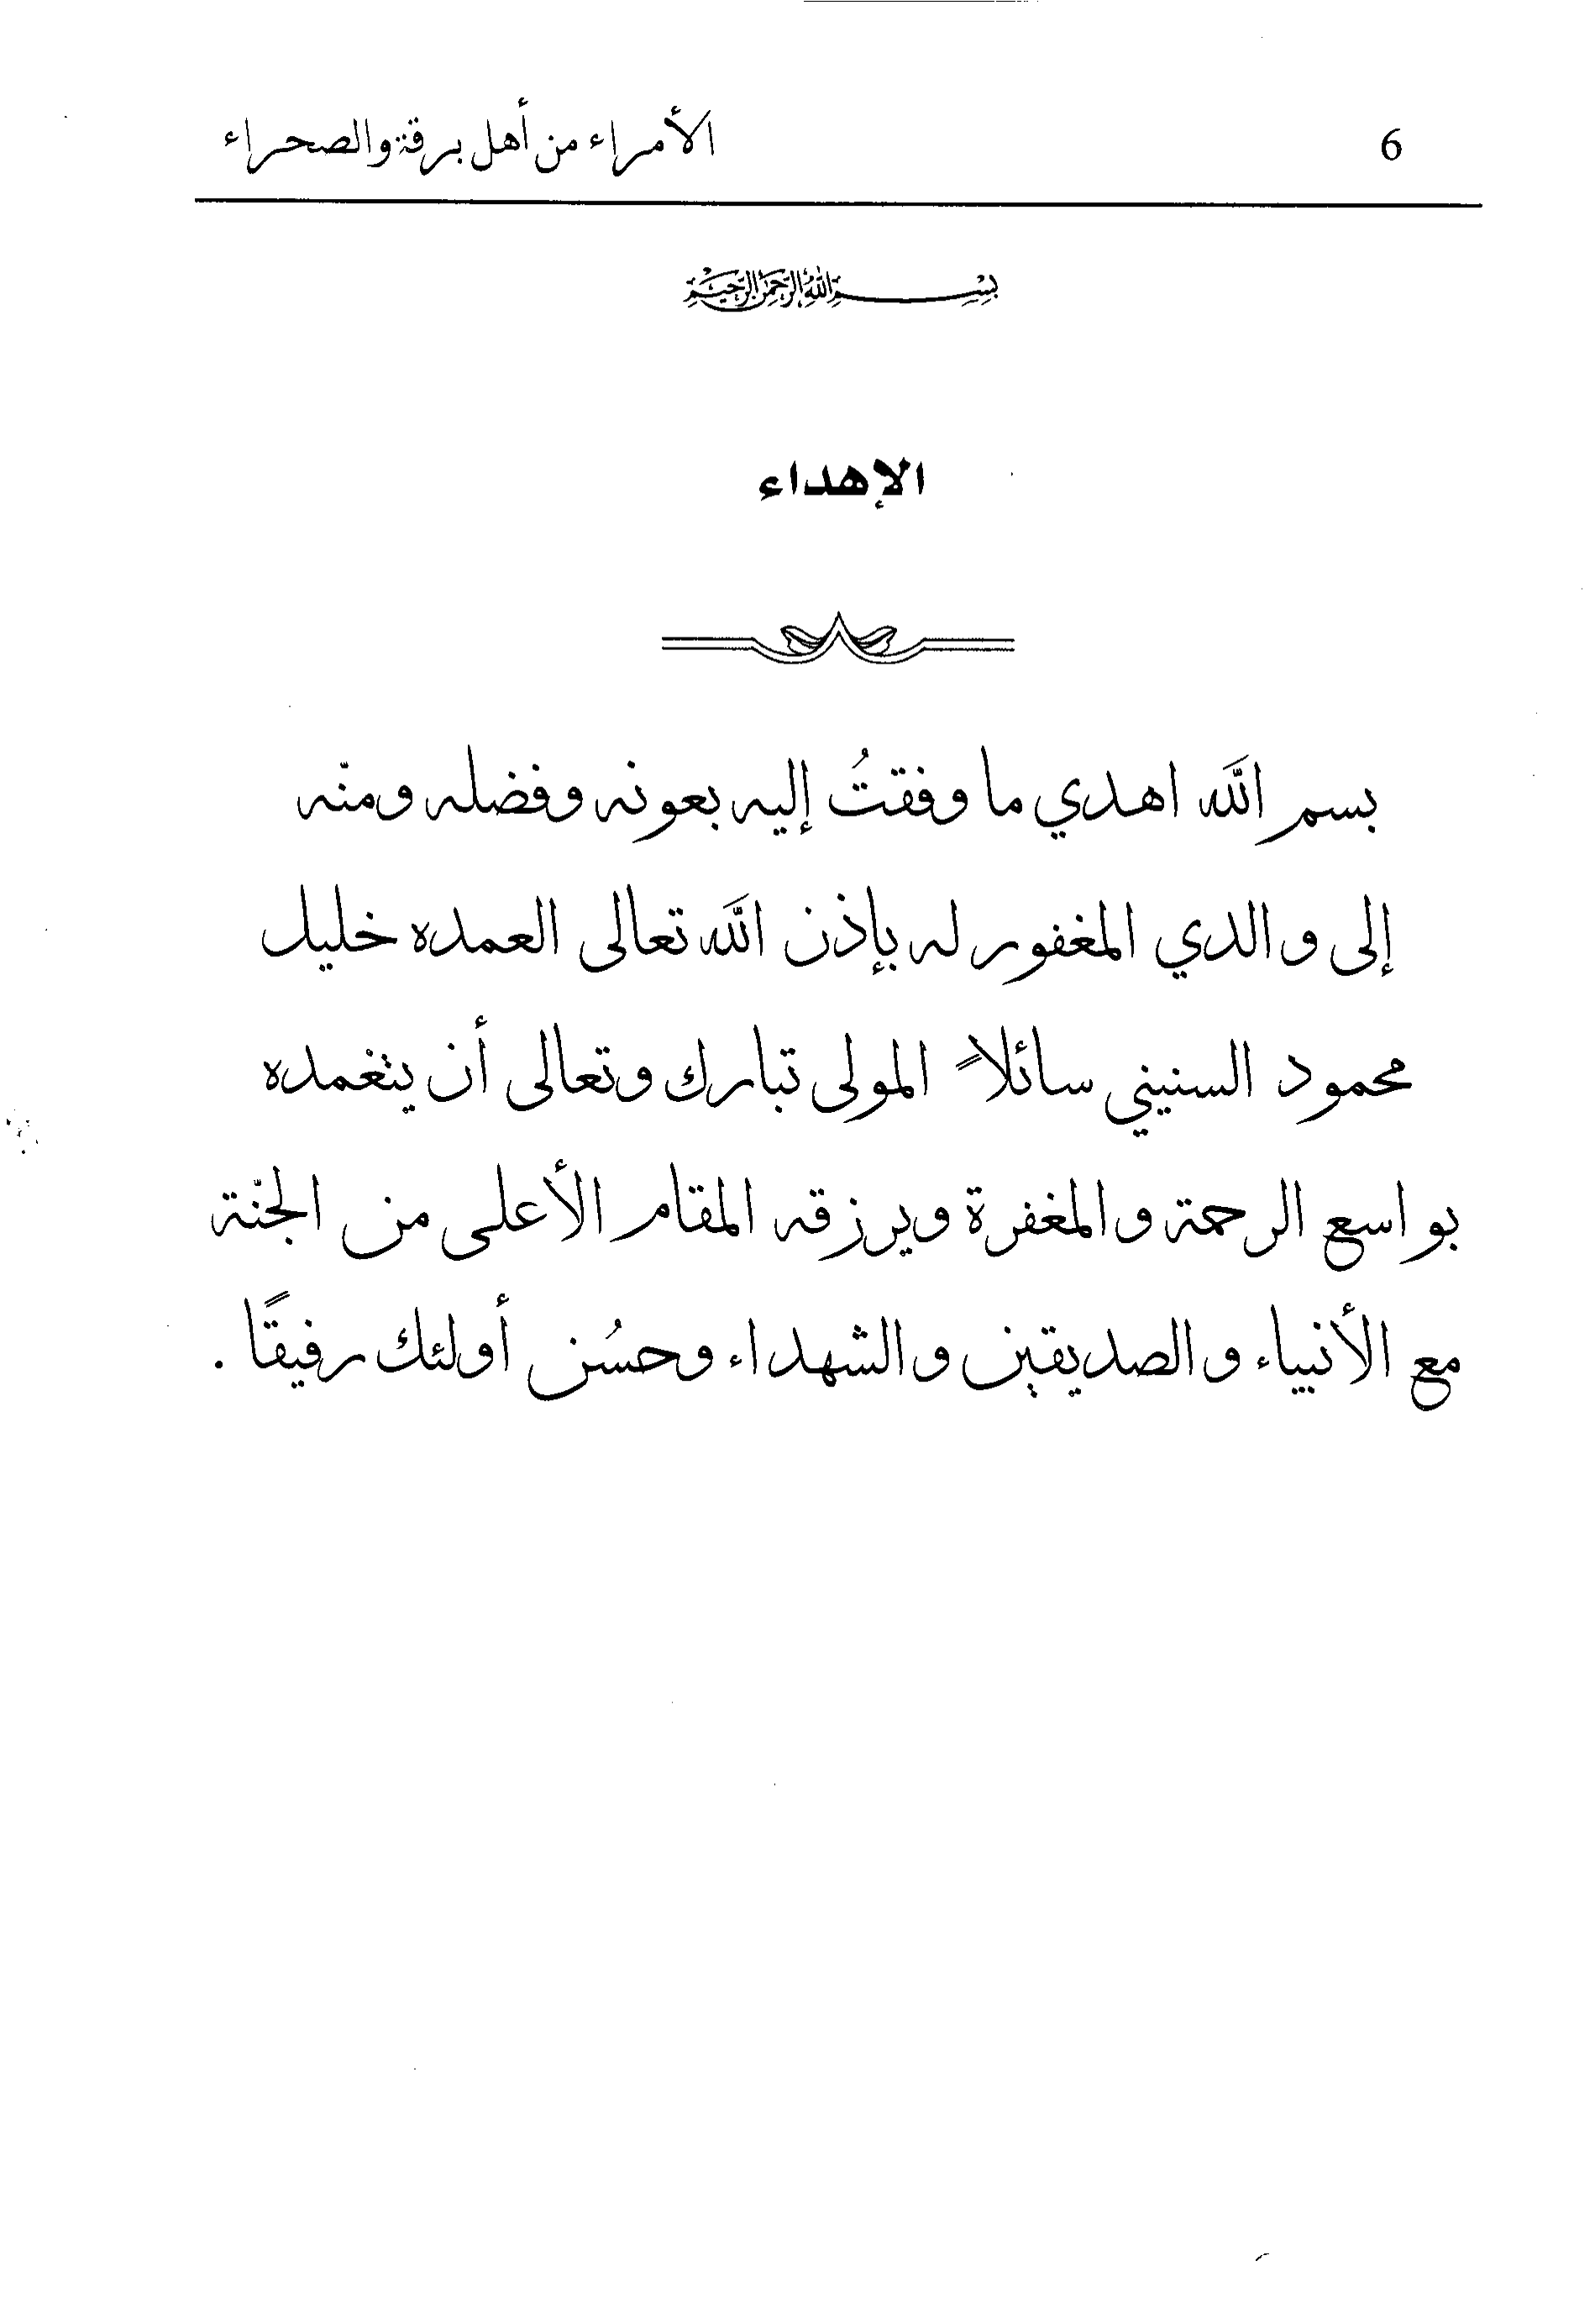 6
الأمراء من أهل برقة والصحراء
بِسْمِ اللَّهِ الرَّحْمَنِ الرَّحِيمِ
الإهداء
بسم الله اهدي ما وفقتُ إليه بعونه وفضله ومنّه
إلى والدي المغفور له بإذن الله تعالى العمده خليل
محمود السنيني سائلاً المولى تبارك وتعالى أن يتغمده
بواسع الرحمة والمغفرة ويرزقه المقام الأعلى من الجنّة
مع الأنبياء والصديقين والشهداء وحسُن أولئك رفيقًا .